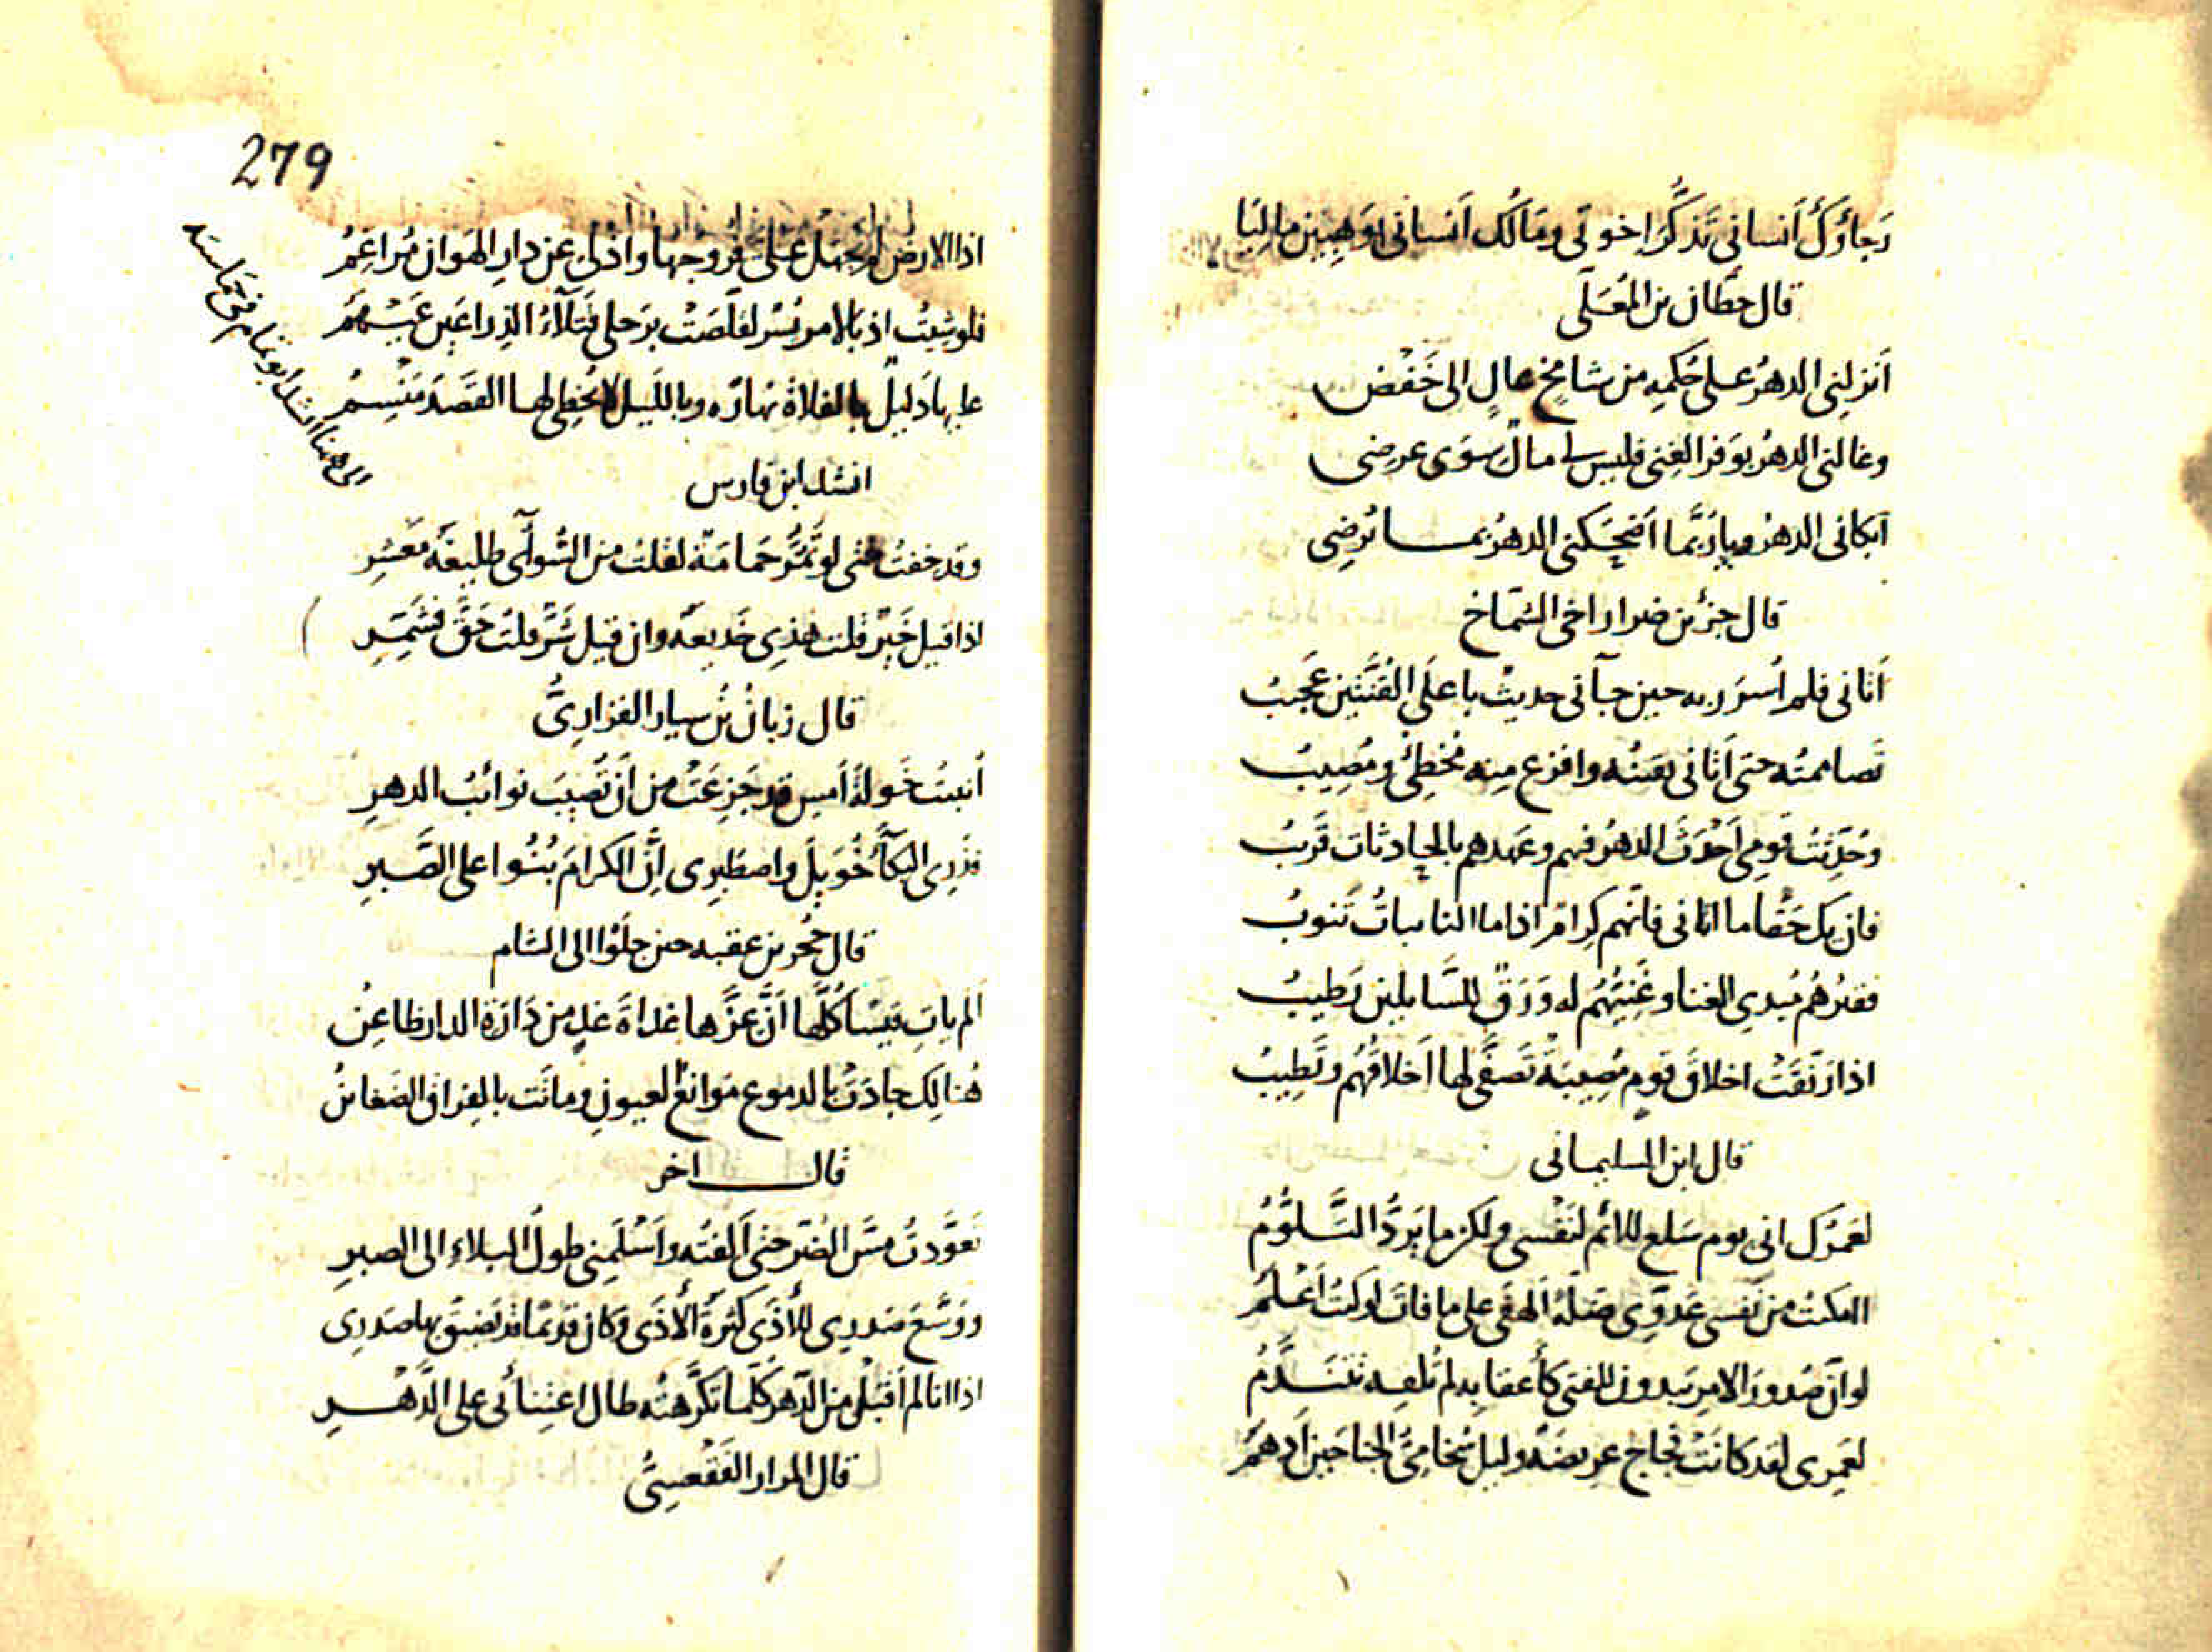 رجاؤك أنساني تذكر اخوتي ومالك أنساني بوهبين ماليا
قال حطان بن المعلى
أنزلني الدهر على حكمه من شامخ عال الى خفض
وغالني الدهر بوفر الغنى فليس لي مال سوى عرضي
أبكاني الدهر ويا ربما أضحكني الدهر بما يرضي
قال جزء بن ضرار اخي الشماخ
أتاني فلم أسرر به حين جآني حديث باعلى القنتين عجيب
تصاممته حتى أتاني يقينه وافزع منه مخطئ ومصيب
وحدثت قومي أحدث الدهر فيهم وعهدهم بالحادثات قريب
فان يك حقا ما اتاني فانهم كرام اذا ما النايبات تنوب
فقيرهم مبدي الغنا وغنيهم له ورق للسايلين رطيب
اذا رنقت اخلاق قوم مصيبة تصفى لها أخلاقهم وتطيب
قال ابن السليماني
لعمرك اني يوم سلع للائم لنفسي ولكن ما يرد التلوم
اامكنت من نفسي عدوي ضلة الهفى على ما فات لو كنت أعلم
لو ان صدور الامر يبدون للفتى كأعقابه لم تلفه يتندم
لعمري لقد كانت فجاج عريضة وليل سخامي الجناحين أدهم
279
اذا الارض لم تجهل علي فروجها واذ لي عن دار الهوان مراغم
فلو شيت اذ بالامر يسر لقلصت برحلي فتلاء الذراعين عيهم
عليها دليل بالفلاة نهاره وبالليل لا يخطي لها القصد منسم
من هنا انشد ابو تمام في حماسته
انشد ابن فارس
وقد خفت حتى لو تمر حمامة لقلت من السوأى طليعة معشر
اذا قيل خير قلت هذي خديعة وان قيل شر قلت حق فشمر
قال زبان بن سيار الفزاري
أنبئت خولة أمس قد جزعت من أن تصيب نوائب الدهر
فذري البكآء خويل واصطبري إن الكرام بنوا على الصبر
قال حجر بن عقبه حين جلوا الى الشام
الم يات قيسا كلها أن عزها غداة غد من دارة الدار ظاعن
هنالك جادت بالدموع موانع العيون وماتت بالفراق الضغائن
قال اخر
تعودت مس الضر حتى ألفته وأسلمني طول البلاء الى الصبر
ووسع صدري للأذى كثرة الأذى وكان قديما قد تضيق بها صدري
اذا انا لم أقبل من الدهر كلما تكرهته طال اعتنائي على الدهر
قال المرار الفقعسي